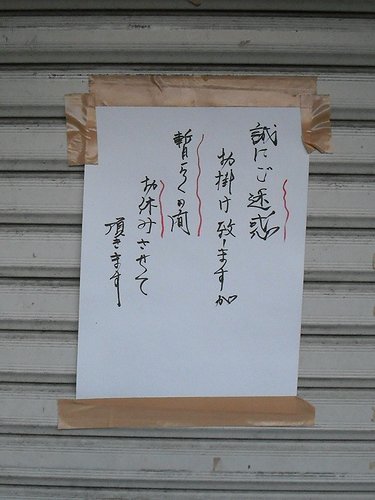 誠にご迷惑
お掛け致しますが
暫らくの間
お休みさせて
頂きます。